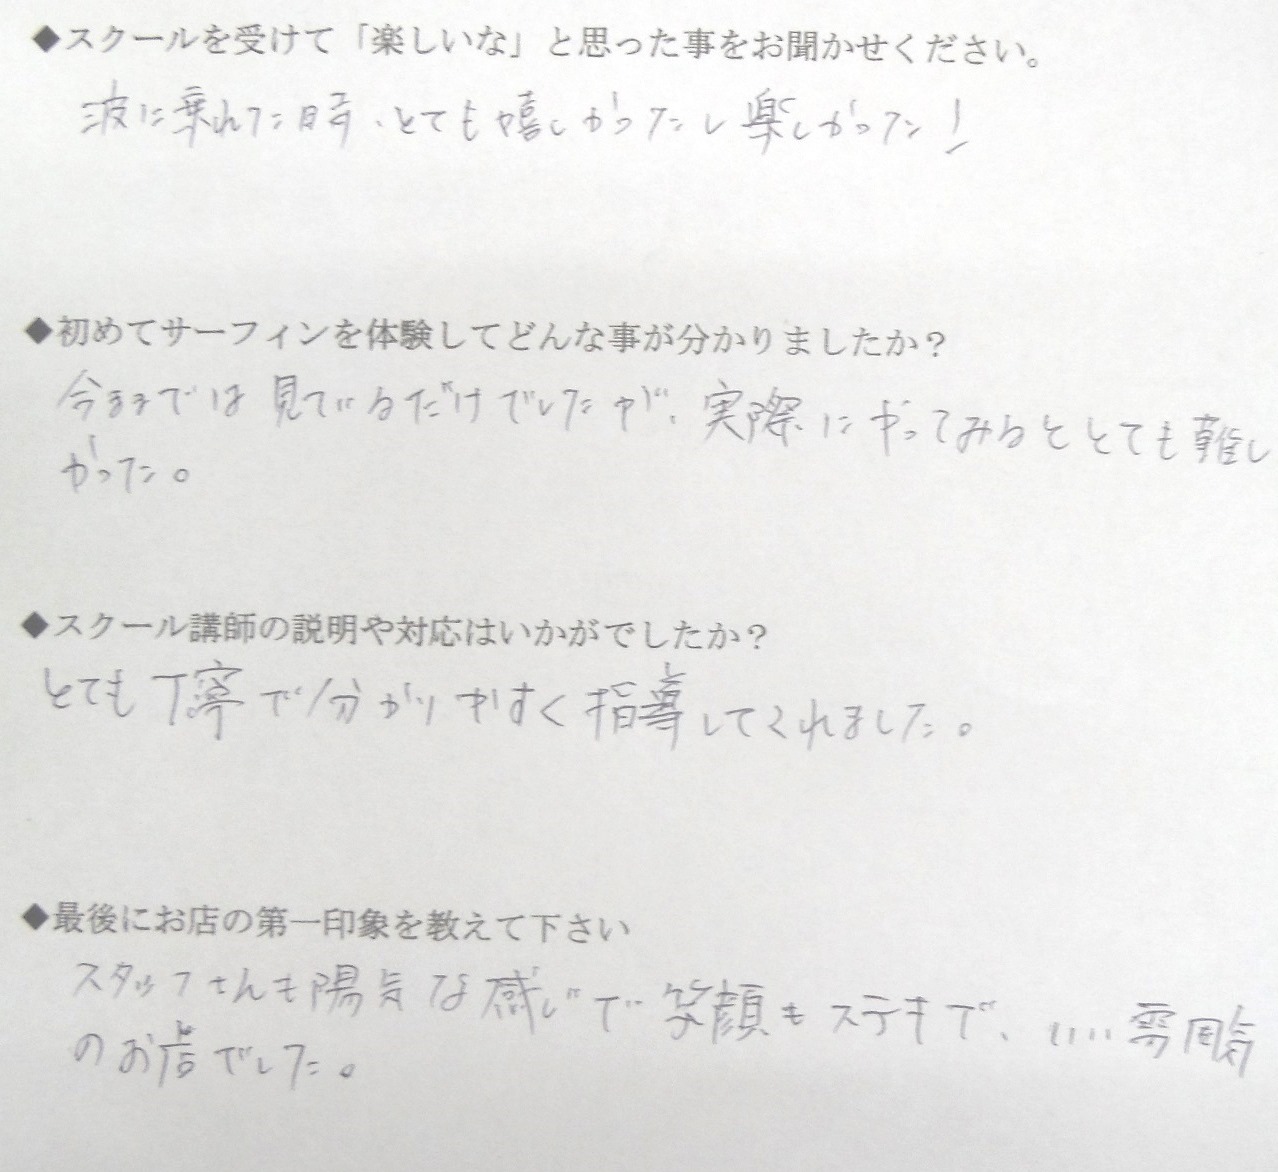 ◆スクールを受けて「楽しいな」と思った事をお聞かせください。
波に乗れた時、とても嬉しかったし楽しかった!
◆初めてサーフィンを体験してどんな事が分かりましたか?
今までは見ているだけでしたが、実際にやってみるととても難し
かった。
◆スクール講師の説明や対応はいかがでしたか?
とても丁寧で分かりやすく指導してくれました。
◆最後にお店の第一印象を教えて下さい
スタッフさんも陽気な感じで笑顔もステキで、いい雰囲気
のお店でした。